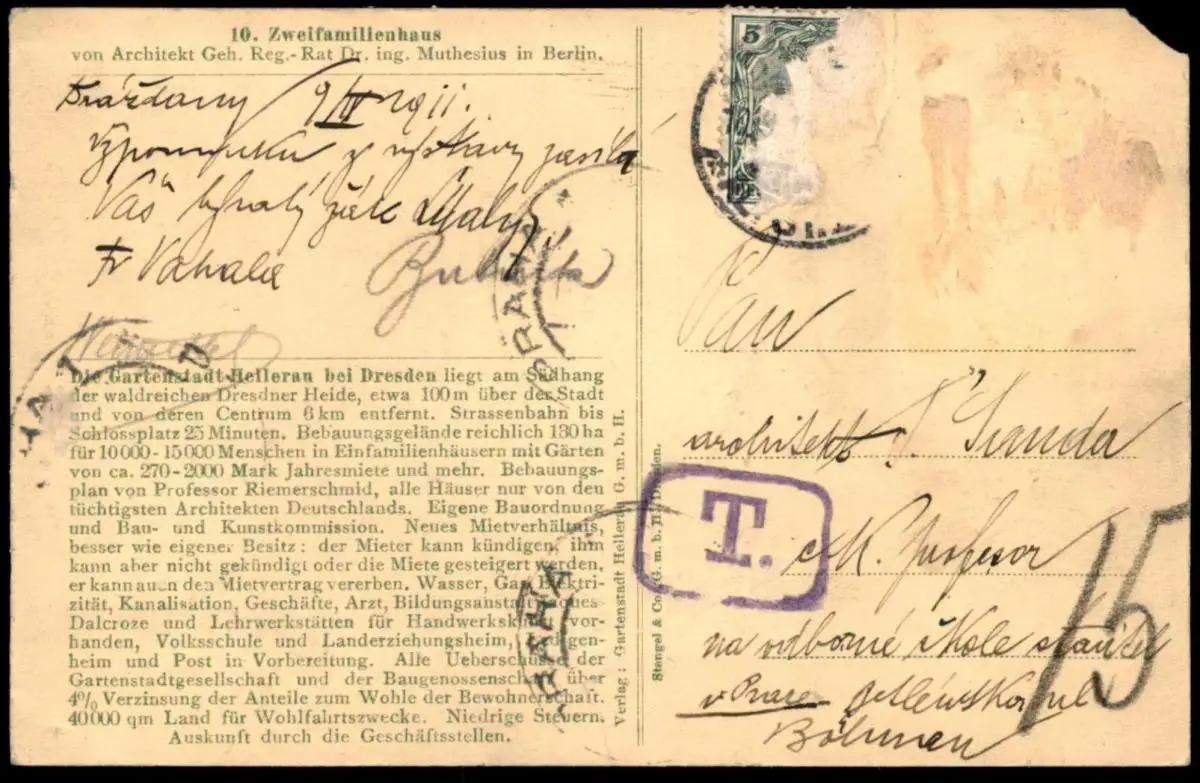 10. Zweifamilienhaus
von Architekt Geh. Reg.-Rat Dr. ing. Muthesius in Berlin.
Drážďany 9/IV 1911.
Vzpomínku z výstavy zasílá
Váš bývalý žák
Fr Vahala
Die Gartenstadt Hellerau bei Dresden liegt am Südhang
der waldreichen Dresdner Heide, etwa 100 m über der Stadt
und von deren Centrum 6 km entfernt. Strassenbahn bis
Schlossplatz 25 Minuten. Bebauungsgelände reichlich 130 ha
für 10 000 - 15 000 Menschen in Einfamilienhäusern mit Gärten
von ca. 270 - 2000 Mark Jahresmiete und mehr. Bebauungs-
plan von Professor Riemerschmid, alle Häuser nur von den
tüchtigsten Architekten Deutschlands. Eigene Bauordnung
und Bau- und Kunstkommission. Neues Mietverhältnis,
besser wie eigener Besitz: der Mieter kann kündigen, ihm
kann aber nicht gekündigt oder die Miete gesteigert werden,
er kann auch den Mietvertrag vererben. Wasser, Gas, Elektri-
zität, Kanalisation, Geschäfte, Arzt, Bildungsanstalt Jaques-
Dalcroze und Lehrwerkstätten für Handwerkskunst vor-
handen, Volksschule und Landerziehungsheim, Ledigen-
heim und Post in Vorbereitung. Alle Ueberschüsse der
Gartenstadtgesellschaft und der Baugenossenschaft über
4% Verzinsung der Anteile zum Wohle der Bewohnerschaft.
40 000 qm Land für Wohlfahrtszwecke. Niedrige Steuern.
Auskunft durch die Geschäftsstellen.
Verlag: Gartenstadt Hellerau G. m. b. H.
Stengel & Co. G. m. b. H., Dresden.
5
PRAHA
PRAHA
T.
15
Pan
architekt
c. k. profesor
na odborné škole
v Praze
Böhmen